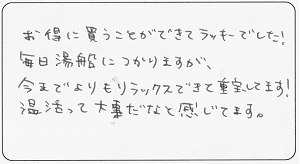 お得に買うことができてラッキーでした!
毎日湯船につかりますが、
今までよりもリラックスできて重宝してます!
温活って大事だなと感じてます。